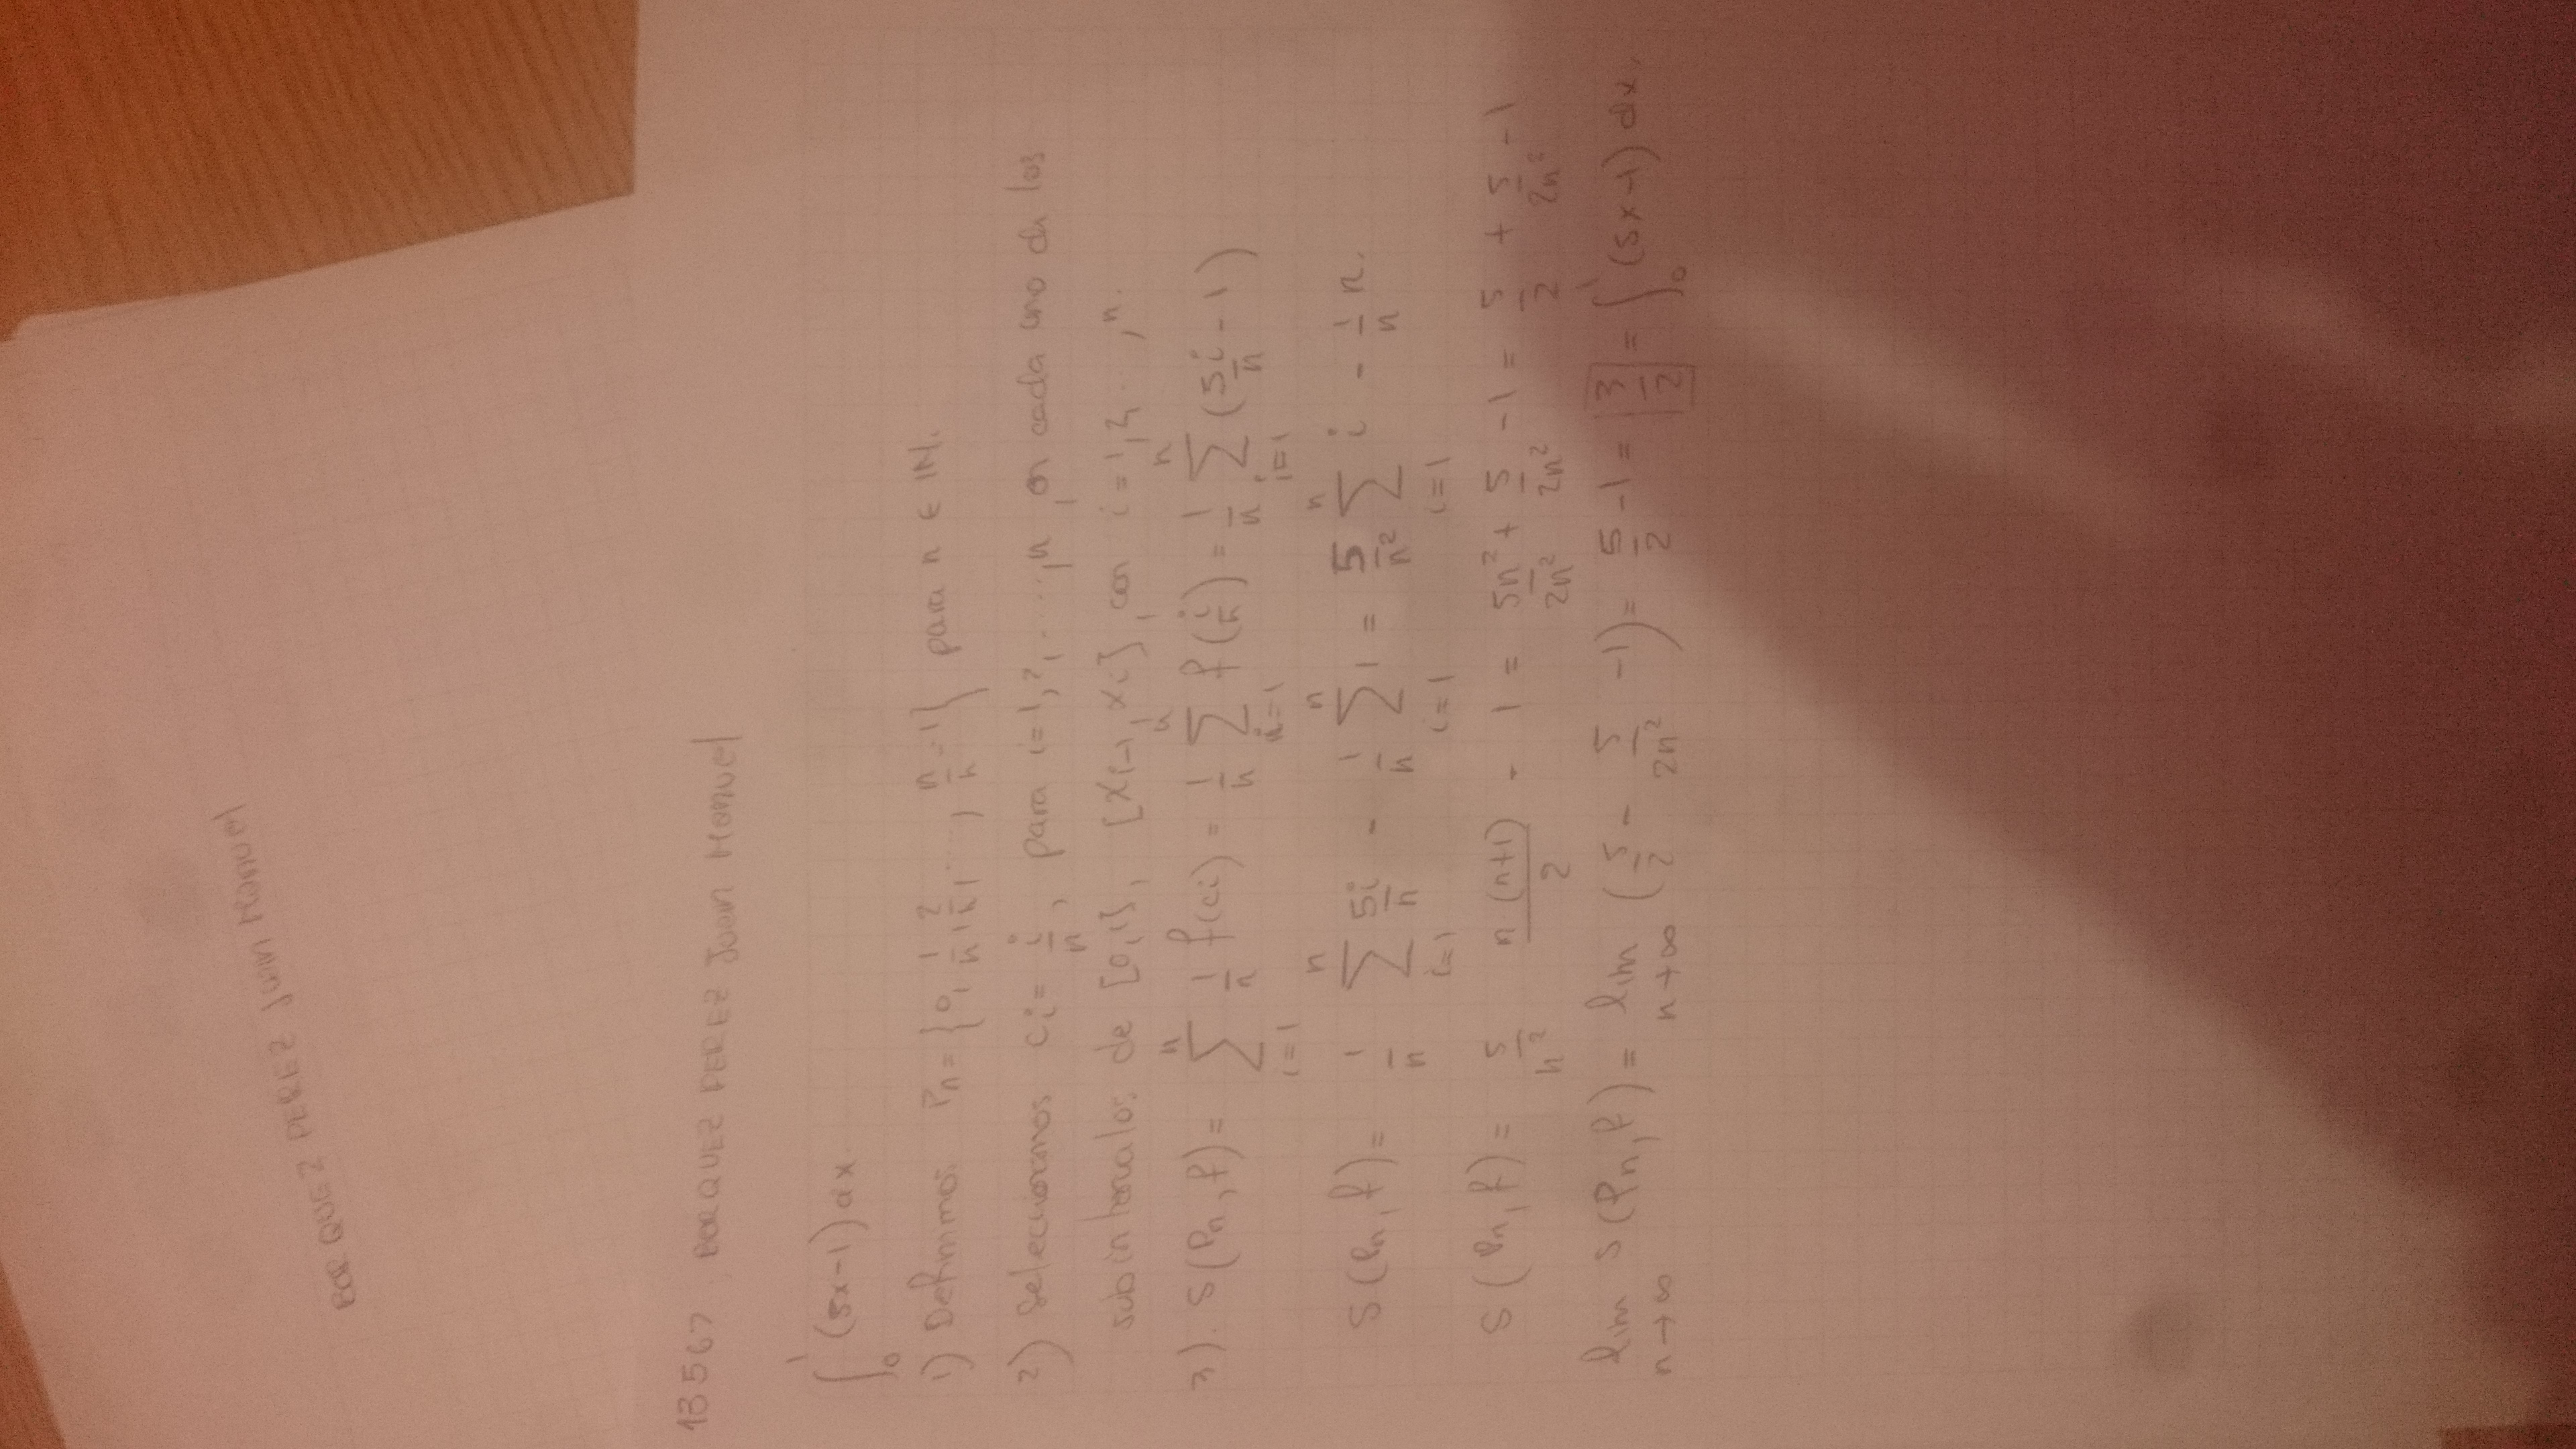 BORQUEZ PEREZ Juan Manuel
183567 BORQUEZ PEREZ Juan Manuel
∫₀¹ (5x-1) dx.
1) Definimos Pn = {0, 1/n, 2/n, ..., n/n = 1} para n ∈ IN.
2) Seleccionamos ci = i/n, para i=1,2,...,n, en cada uno de los
subintervalos de [0,1], [xi-1, xi], con i=1,2,...,n.
3). S(Pn, f) = ∑_{i=1}^{n} 1/n f(ci) = 1/n ∑_{i=1}^{n} f(i/n) = 1/n ∑_{i=1}^{n} (5i/n - 1)
S(Pn, f) = 1/n ∑_{i=1}^{n} 5i/n - 1/n ∑_{i=1}^{n} 1 = 5/n² ∑_{i=1}^{n} i - 1/n n.
S(Pn, f) = 5/n² n(n+1)/2 - 1 = 5n²/2n² + 5/2n² - 1 = 5/2 + 5/2n² - 1
lim_{n→∞} S(Pn, f) = lim_{n→∞} (5/2 - 5/2n² - 1) = 5/2 - 1 = 3/2 = ∫₀¹ (5x-1) dx.